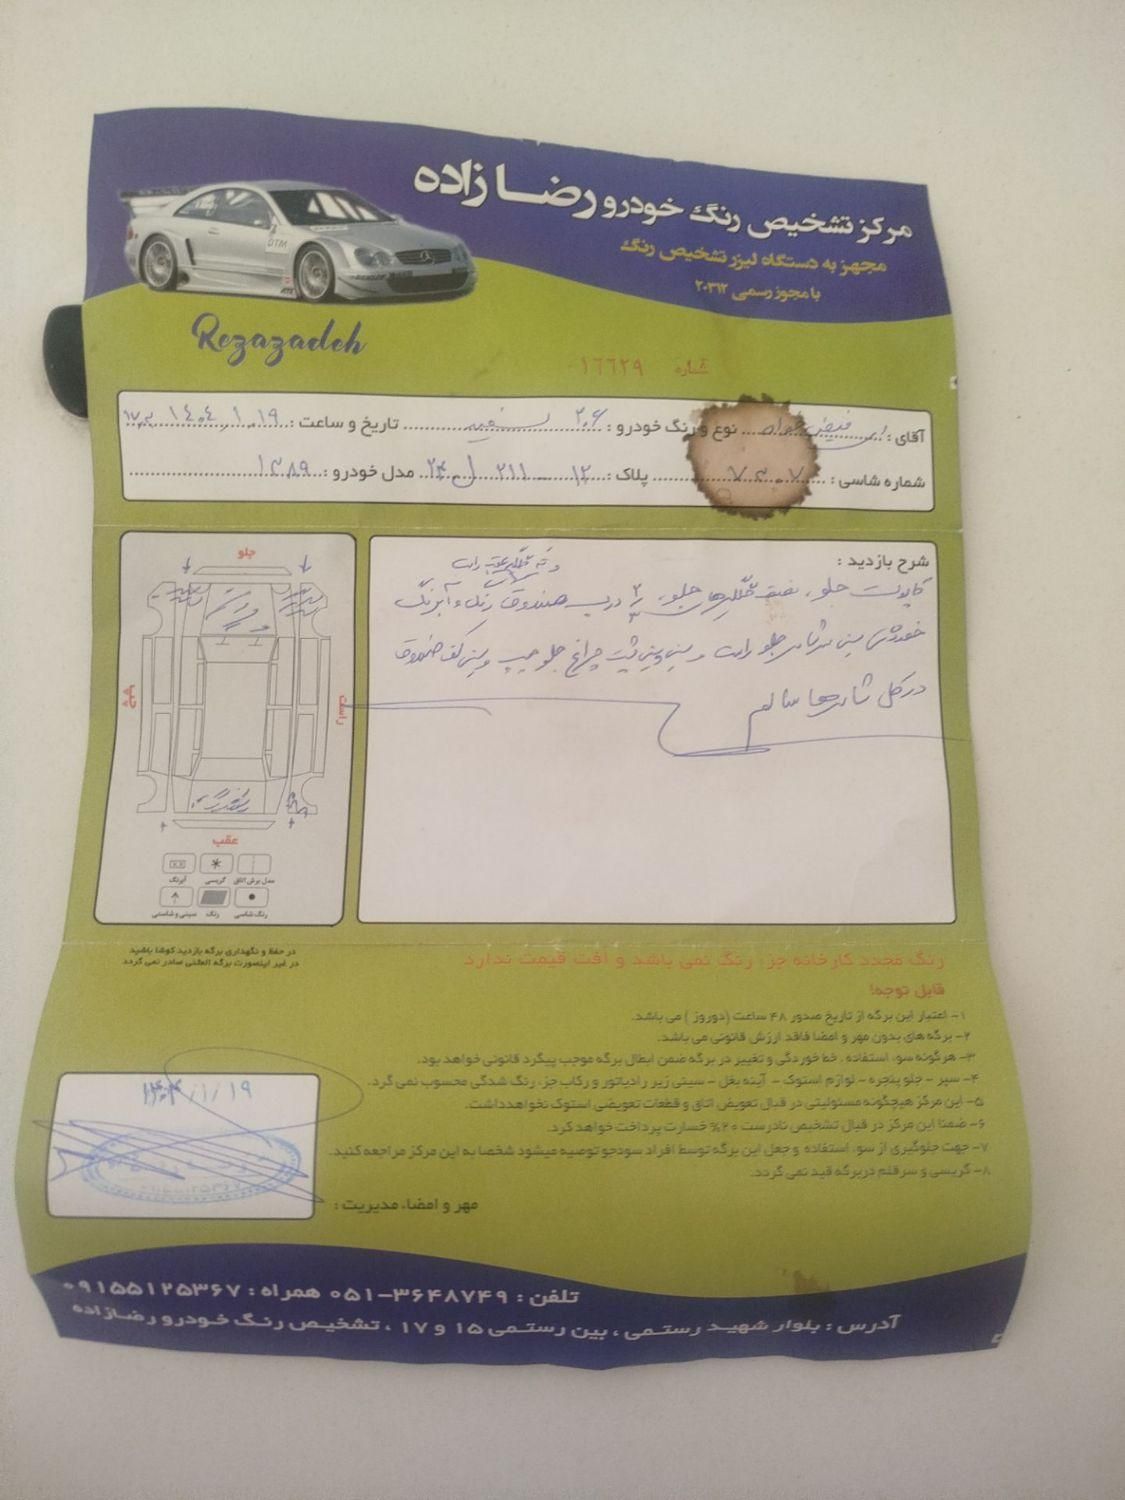 مرکز تشخیص رنگ خودرو رضازاده
مجهز به دستگاه لیزر تشخیص رنگ
با مجوز رسمی ۲۰۳۱۲
DTM
Rezazadeh
شماره ۰۱۶۶۲۹
آقای : نوع و رنگ خودرو : ۲۰۶ سفید تاریخ و ساعت : ۱۴۰۴/۱/۱۹
شماره شاسی : ۷۳۰۷ پلاک : ۱۲ - ۲۱۱ ل ۲۴ مدل خودرو : ۱۳۸۹
شرح بازدید :
کاپوت جلو، گلگیرهای جلو، درب صندوق رنگ و آبرنگ
خوردگی سینی جلو راست و سینی چراغ جلو چپ و سینی کف صندوق
در کل سالم
جلو
چپ
راست
عقب
مدل برش اتاق گریسی آبرنگ
رنگ شاسی رنگ سینی و شاسی
در حفظ و نگهداری برگه بازدید کوشا باشید
در غیر اینصورت برگه المثنی صادر نمی گردد
رنگ مجدد کارخانه جزء رنگ نمی باشد و افت قیمت ندارد
قابل توجه!
۱- اعتبار این برگه از تاریخ صدور ۴۸ ساعت (دوروز) می باشد.
۲- برگه های بدون مهر و امضا فاقد ارزش قانونی می باشد.
۳- هرگونه سوء استفاده ، خط خوردگی و تغییر در برگه ضمن ابطال برگه موجب پیگرد قانونی خواهد بود.
۴- سپر - جلو پنجره - لوازم استوک - آینه بغل - سینی زیر رادیاتور و رکاب جزء رنگ شدگی محسوب نمی گردد.
۵- این مرکز هیچگونه مسئولیتی در قبال تعویض اتاق و قطعات تعویضی استوک نخواهدداشت.
۶- ضمنا این مرکز در قبال تشخیص نادرست ۲۰% خسارت پرداخت خواهد کرد.
۷- جهت جلوگیری از سوء استفاده و جعل این برگه توسط افراد سودجو توصیه میشود شخصا به این مرکز مراجعه کنید.
۸- گریسی و سرقلم دربرگه قید نمی گردد.
۱۴۰۴/۱/۱۹
مهر و امضاء مدیریت :
تلفن : ۳۶۴۸۷۴۹-۰۵۱ همراه : ۰۹۱۵۵۱۲۵۳۶۷
آدرس : بلوار شهید رستمی ، بین رستمی ۱۵ و ۱۷ ، تشخیص رنگ خودرو رضازاده